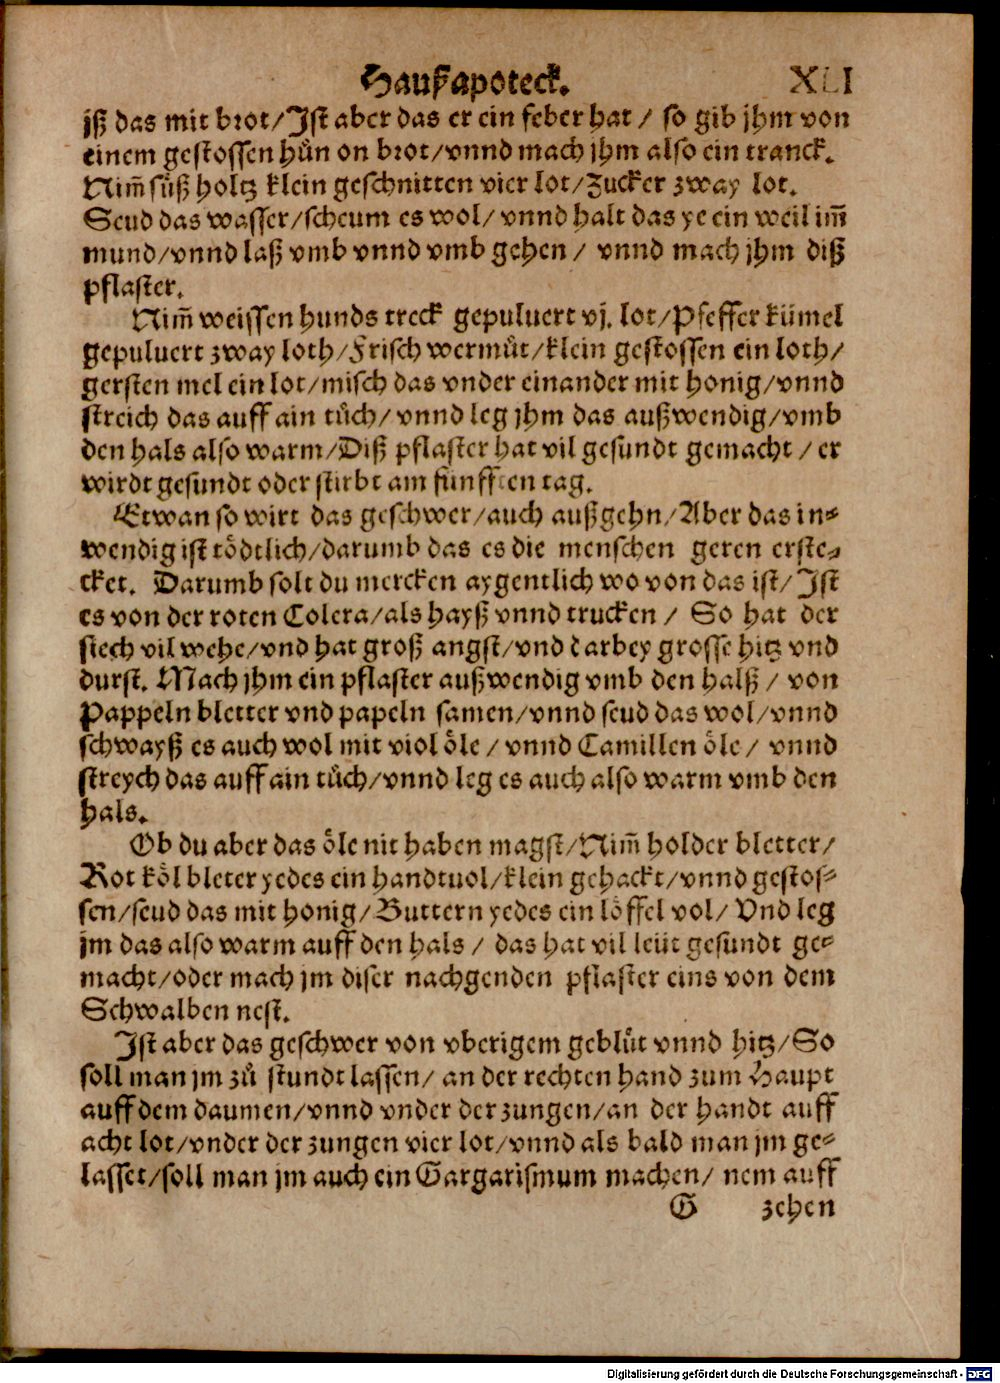 Haußapoteck. XLI
jß das mit brot/Jst aber das er ein feber hat / so gib jhm von
einem gestossen hůn on brot/vnnd mach jhm also ein tranck.
Nim̃ süß holtz klein geschnitten vier lot/Zucker zway lot.
Seud das wasser/scheum es wol/ vnnd halt das ye ein weil im̃
mund/vnnd laß vmb vnnd vmb gehen / vnnd mach jhm diß
pflaster.
Nim̃ weissen hunds treck gepuluert vj. lot/Pfeffer kümel
gepuluert zway loth/Frisch wermůt/klein gestossen ein loth/
gersten mel ein lot/misch das vnder einander mit honig/vnnd
streich das auff ain tůch/ vnnd leg jhm das außwendig/vmb
den hals also warm/Diß pflaster hat vil gesundt gemacht / er
wirdt gesundt oder stirbt am fünfften tag.
Etwan so wirt das geschwer/auch außgehn/Aber das in-
wendig ist tödtlich/darumb das es die menschen geren erste-
cket. Darumb solt du mercken aygentlich wo von das ist/ Jst
es von der roten Colera/als hayß vnnd trucken / So hat der
siech vil wehe/vnd hat groß angst/vnd darbey grosse hitz vnd
durst. Mach jhm ein pflaster außwendig vmb den halß / von
Pappeln bletter vnd papeln samen/vnnd seud das wol/vnnd
schwayß es auch wol mit viol öle / vnnd Camillen öle / vnnd
streych das auff ain tůch/vnnd leg es auch also warm vmb den
hals.
Ob du aber das öle nit haben magst/Nim̃ holder bletter/
Rot köl bleter yedes ein handtuol/klein gehackt/vnnd gestos-
sen/seud das mit honig/Buttern yedes ein löffel vol/ Vnd leg
jm das also warm auff den hals / das hat vil leüt gesundt ge-
macht/oder mach jm diser nachgenden pflaster eins von dem
Schwalben nest.
Jst aber das geschwer von vberigem geblůt vnnd hitz/So
soll man jm zů stundt lassen/ an der rechten hand zum Haupt
auff dem daumen/vnnd vnder der zungen/an der handt auff
acht lot/vnder der zungen vier lot/vnnd als bald man jm ge-
lasset/soll man jm auch ein Gargarismum machen/ nem auff
G zehen
Digitalisierung gefördert durch die Deutsche Forschungsgemeinschaft - DFG